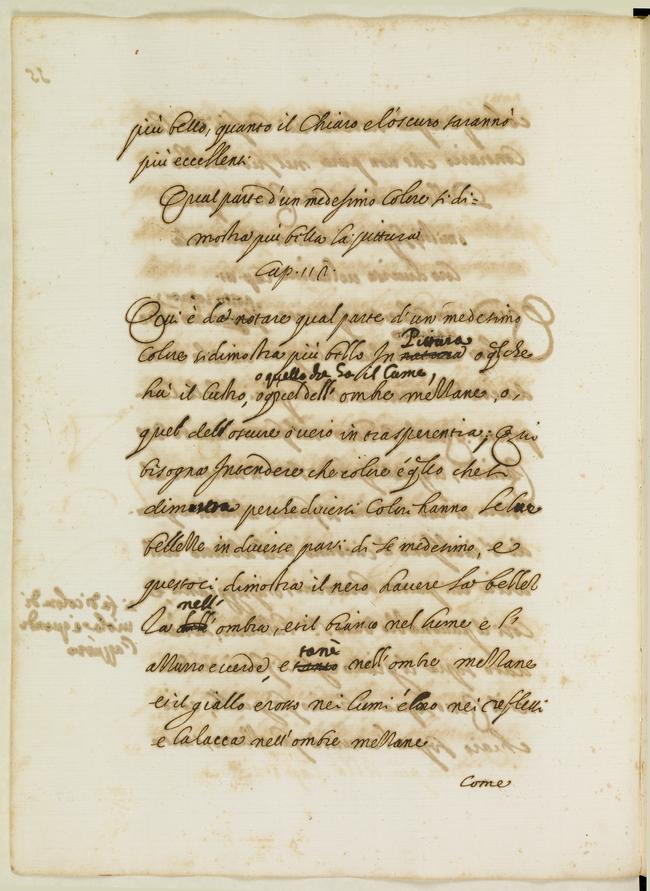 più bello, quanto il Chiaro e l'oscuro saranno
più eccellenti
Qual parte d'un medesimo Colore si di=
mostra più bella la pittura
Cap. 112.
Qui è da notare qual parte d'un medesimo
Pittura
Colore si dimostra più bello In natura o q̃l che
o quello che ha il Lume,
hà il lustro, o quel dell'ombre mezzane, o,
quel dell'oscure overo in trasperentia; Qui
bisogna Intendere che colore è q̃llo che si
dimostra perche diversi Colori hanno le lor
bellezze in diverse parti di se medesimo, e
questo ci dimostra il nero havere la bellez
nell'
za dell'ombra, et il bianco nel lume e l'
tanè
azzurro e verde, e tanto nell'ombre mezzane
et il giallo e rosso nei lumi e l'oro nei reflessi
e la lacca nell'ombre mezzane
Come